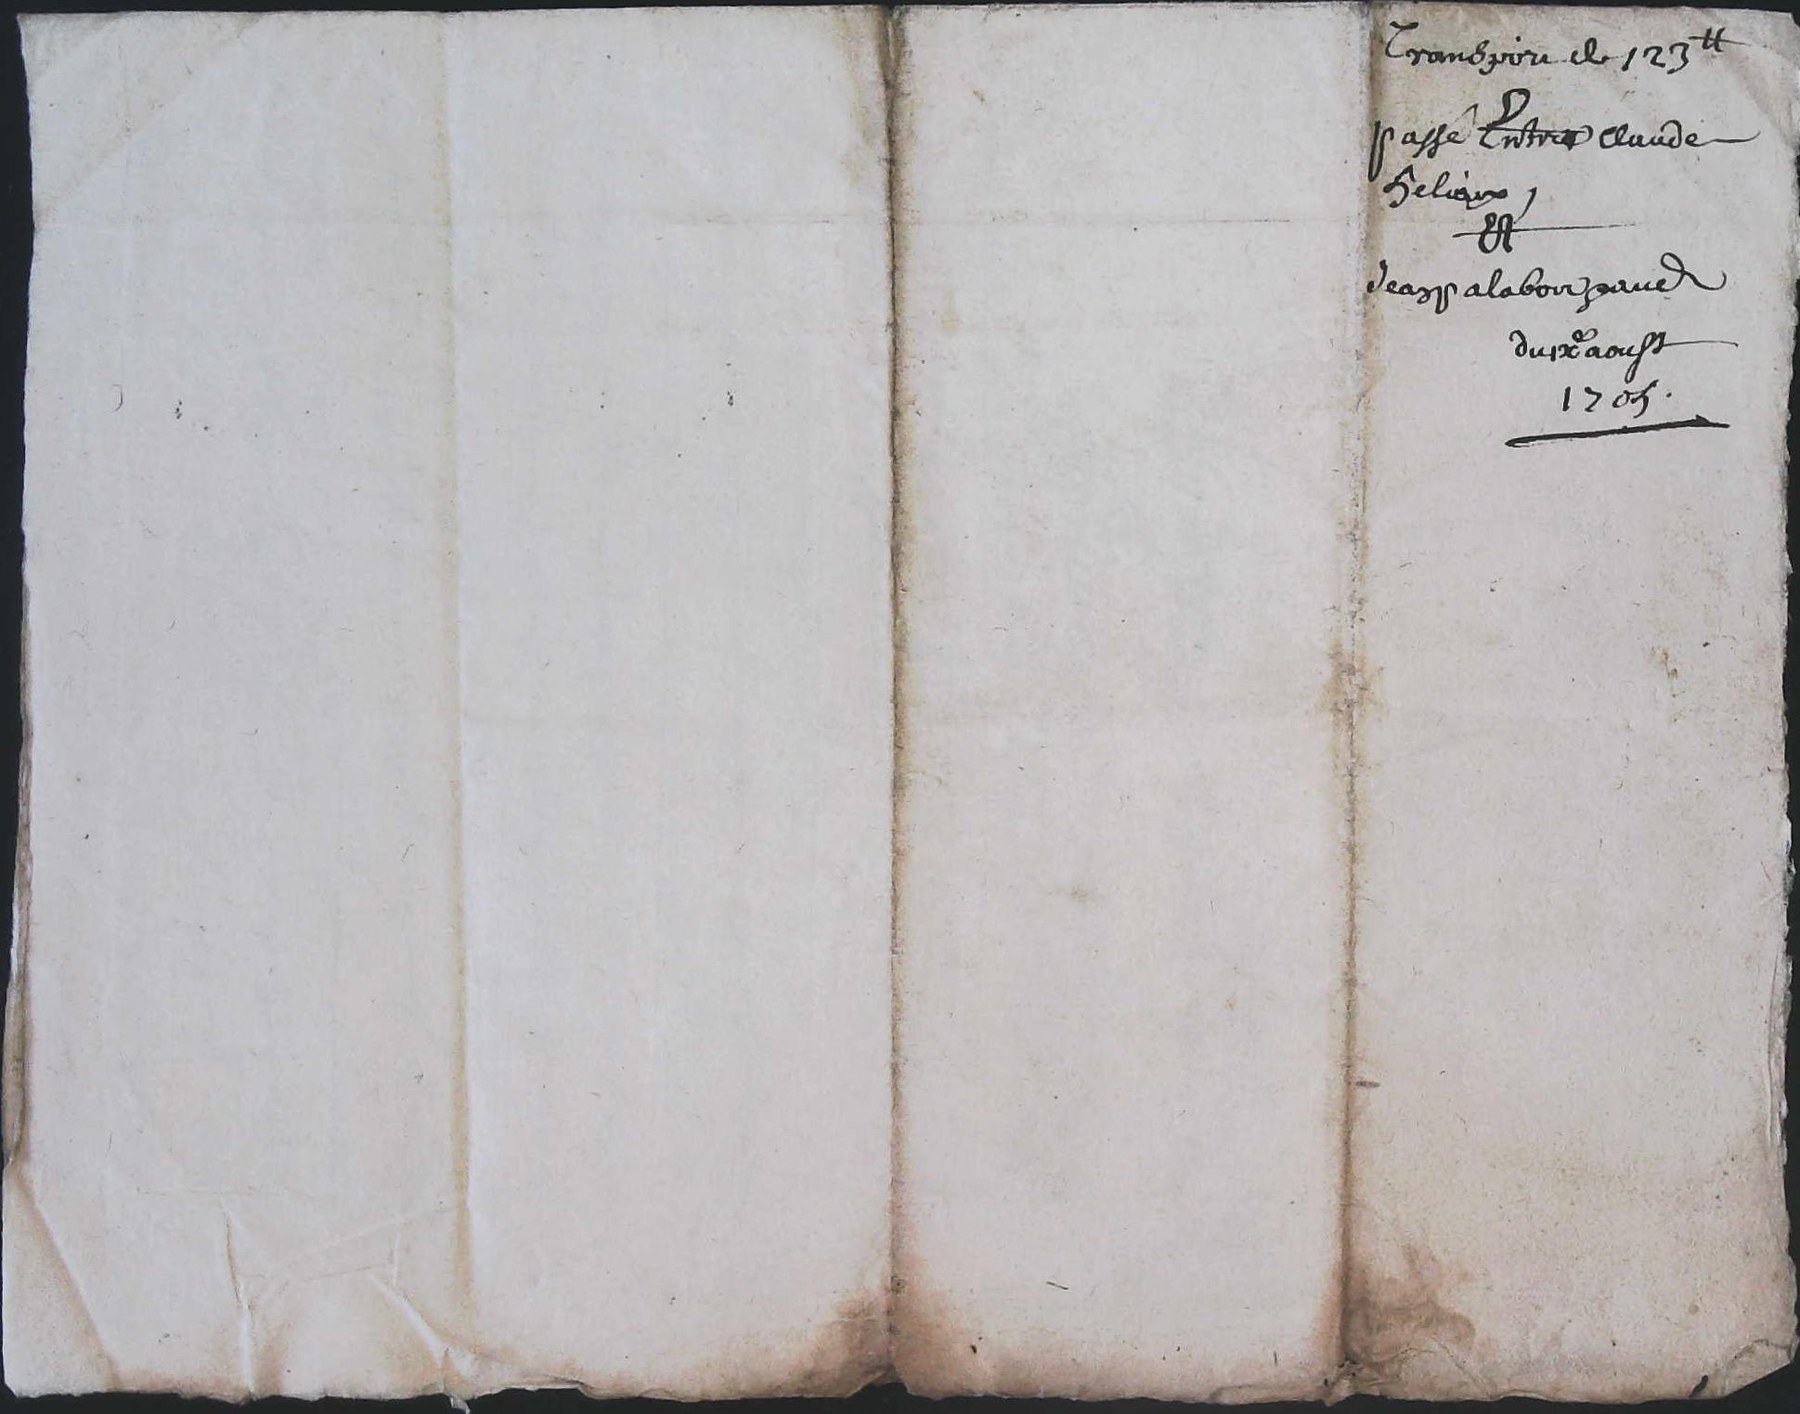 Transport de 123ᵗᵗ
passé Entre Claude
helioux,
Et
Jean palabour
du ixe aoust
1705.